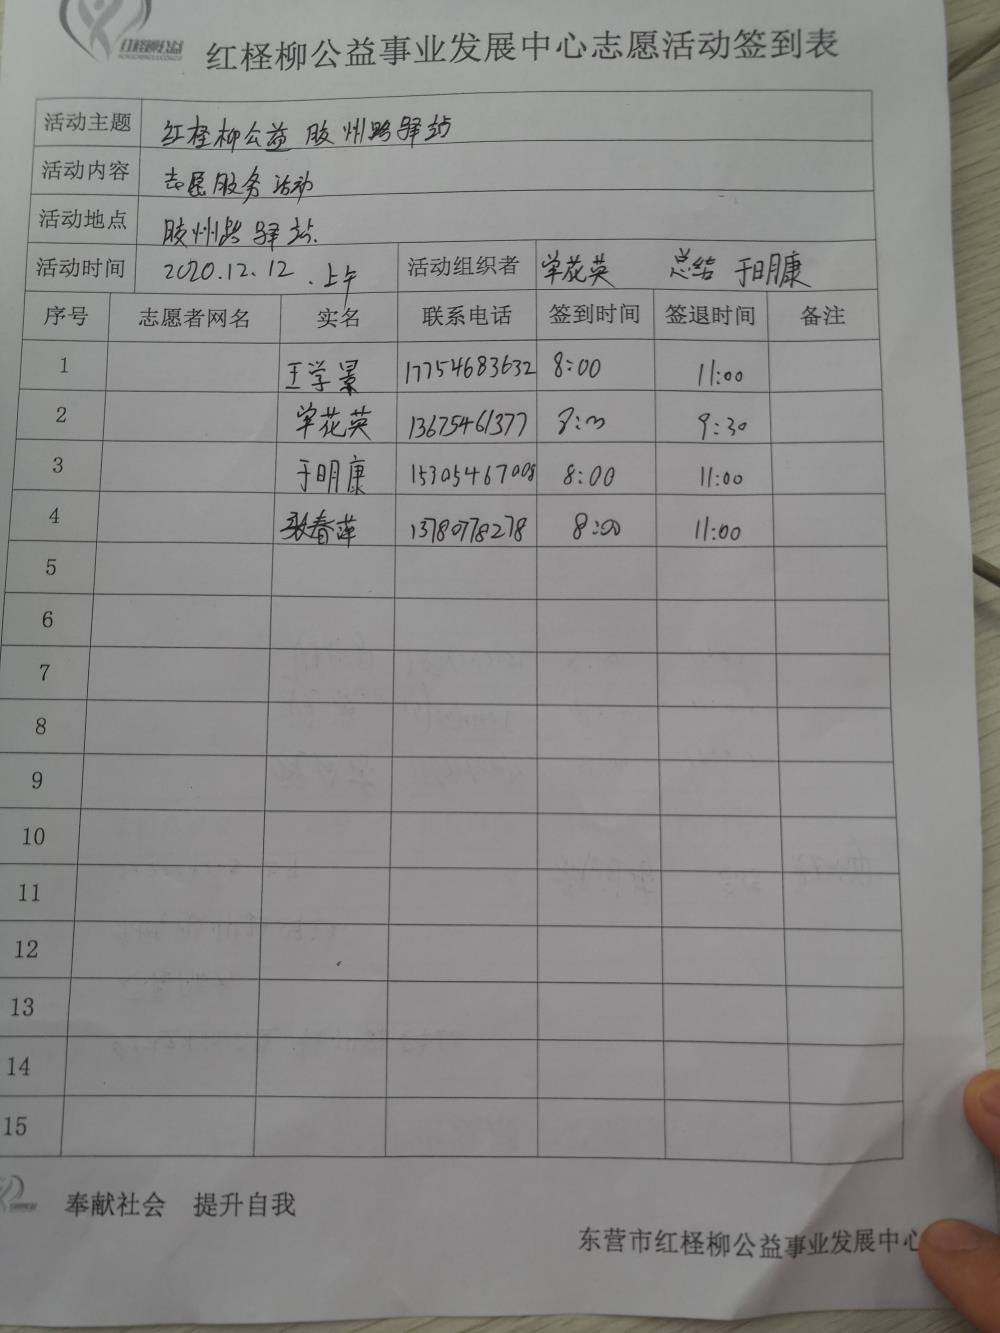 红柽柳公益
红柽柳公益事业发展中心志愿活动签到表
活动主题 红柽柳公益 胶州路驿站
活动内容 志愿服务活动
活动地点 胶州路驿站.
活动时间 2020.12.12 .上午 活动组织者 单花英 总结 于明康
序号 志愿者网名 实名 联系电话 签到时间 签退时间 备注
1 王学景 17754683632 8:00 11:00
2 单花英 13675461377 9:30
3 于明康 15305467008 8:00 11:00
4 张春萍 13780778278 8:00 11:00
5
6
7
8
9
10
11
12
13
14
15
奉献社会 提升自我
东营市红柽柳公益事业发展中心